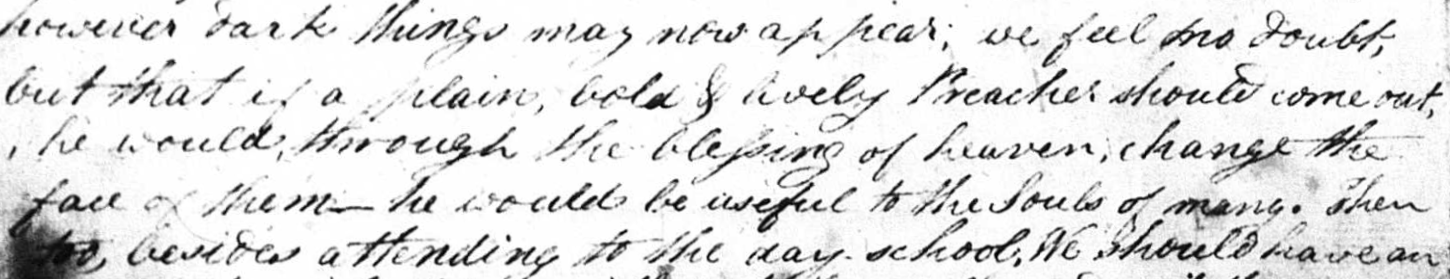 however dark things may now appear; we feel no doubt,
but that if a plain, bold & lively Preacher should come out,
he would, through the blessing of heaven, change the
face of them — he would be useful to the Souls of many. Then
too, besides attending to the day school, We should have an